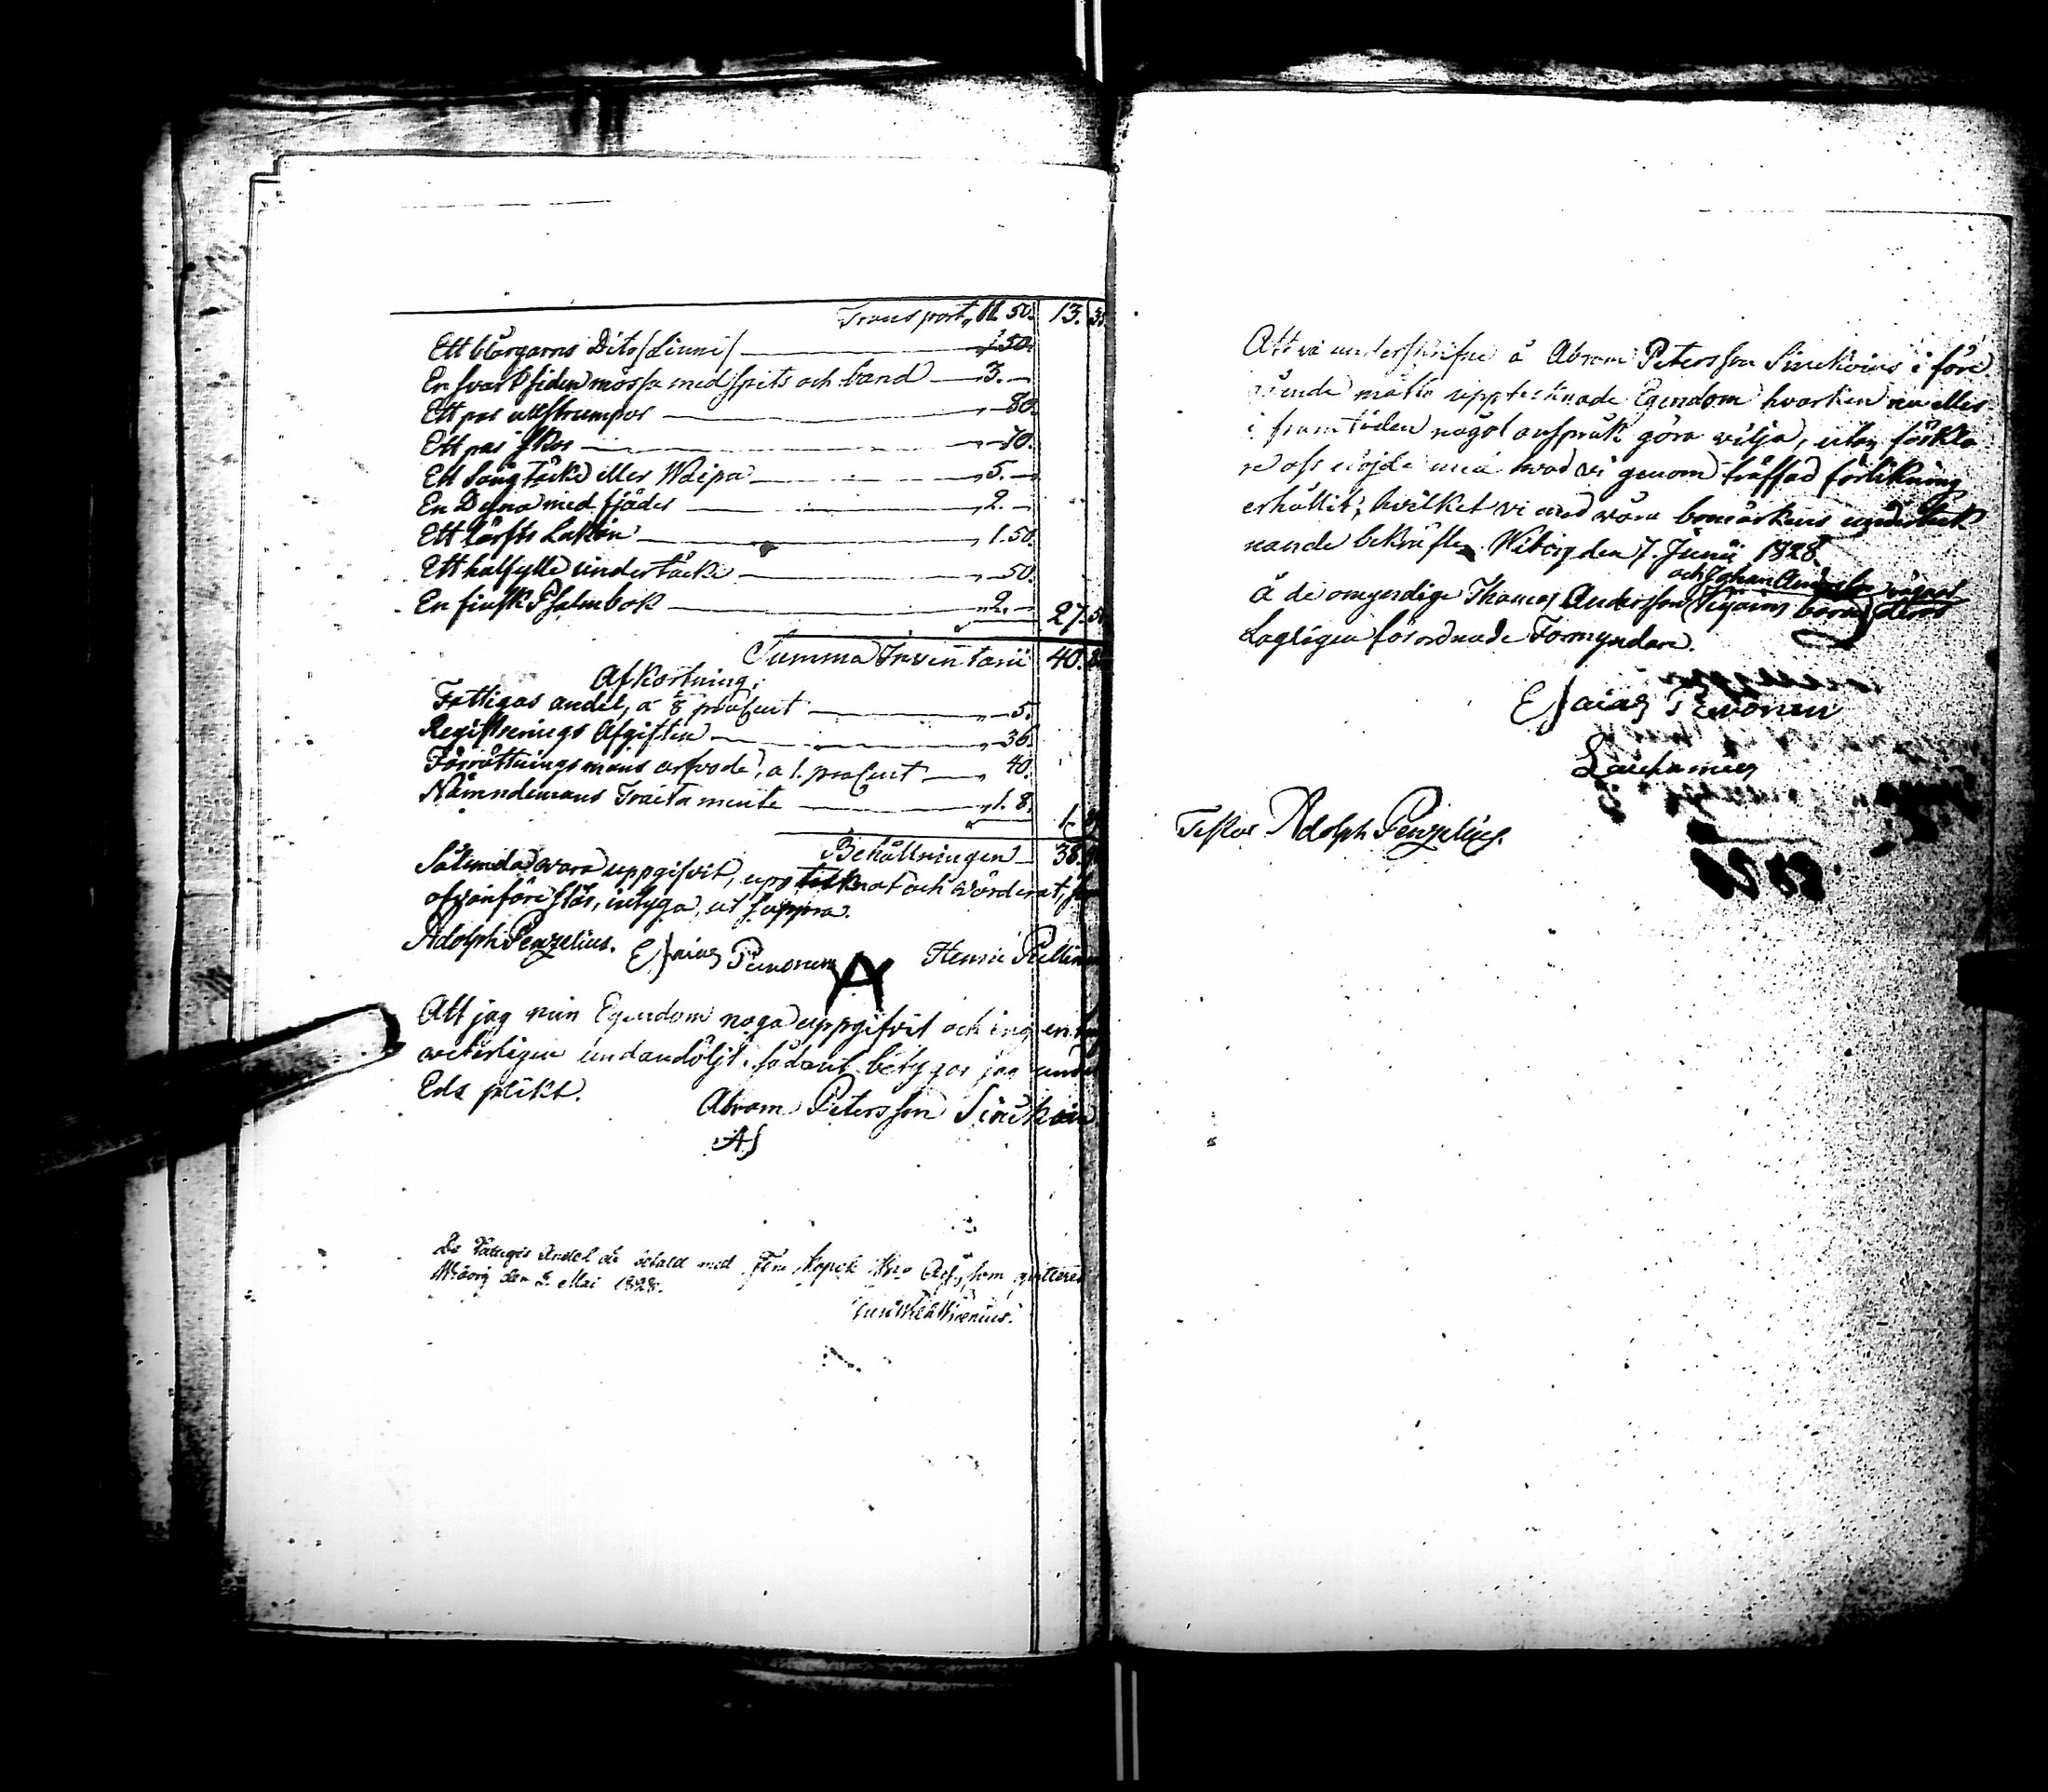 Transport, 11. 50. 13. 3
Ett blårgarns Dito /Linne/ 1.50.
En svart siden mössa med spits och band 3. -
Ett par ullstrumpor 80.
Ett par Skor 70.
Ett Sängtäcke eller Waipa 5. -
En Dyna med fjäder 2. -
Ett lärfts Lakan 1.50.
Ett halfylle undertäcke 50.
En finsk Psalmbok 2. - 27. 5
Summa Inventarii 40. 8
Afkortning:
Fattigas andel, a ⅛ proCent 5.
Registrerings Afgiften 36.
Förrättningsmans arfvode, a 1. proCent 40.
Nämndemans Traktamente 1. 8.
1. 89
Behållningen 38.
Sålunda vara uppgifvit, upptecknat och värderat,
ofvanföre står, intyga, ut supra.
Adolph Penzelius. Esaias Penonen Henric Pellinen
A
Att jag min Egendom noga uppgifvit och ingenting
veterligen undandöljt, sådant betygar jag under
Eds plikt.
Abram Petersson Sinckoin
AS
De Fattiges Andel är betald med Fem Kopek Bco Ass, som qvitteres
Wiborg den 2. Mai 1828.
Att vi underskrifne å Abram Petersson Sinckoins i före
gående måtto upptecknade Egendom hvarken nu eller
i framtiden något anspråk göra vilja, utan förkla
re oss nöjde med hvad vi genom träffad förlikning
erhållit; hvilket vi med våra bomärkens underteck
nande bekräfte. Wiborg den 7. Junii 1828.
och Johan Andersson
å de omyndige Thomas Andersson barns
Lagligen förordnade Förmyndare.
Esaias Penonen
Testor Adolph Penzelius.